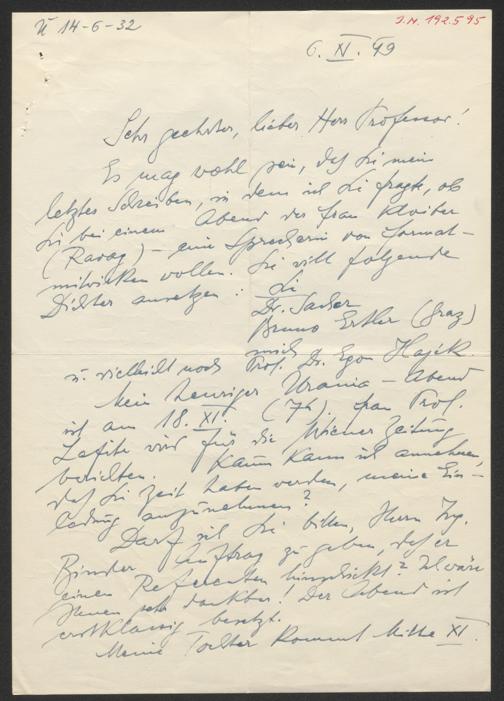 Ü 14-6-32
I.N. 192.595
6. XI. 49
Sehr geehrter, lieber Herr Professor!
Es mag wohl sein, daß Sie mein
letztes Schreiben, in dem ich Sie fragte, ob
Sie bei einem Abend der Frau Kloiber
(Ravag) – eine Sprecherin von Format –
mitwirken wollen. Sie will folgende
Dichter ansetzen: Sie
Dr. Sacher
Bruno Ertler (Graz)
mich
u. vielleicht noch Prof. Dr. Egon Hajek.
Mein heuriger Urania-Abend
ist am 18. XI (7h). Frau Prof.
Lafite wird für die Wiener Zeitung
berichten. Kaum kann ich annehmen,
daß Sie Zeit haben werden, meine Ein-
ladung anzunehmen?
Darf ich Sie bitten, Herrn Ing.
Binder Auftrag zu geben, daß er
einen Referenten hinschickt? Ich wäre
Ihnen sehr dankbar! Der Abend ist
erstklassig besetzt.
Meine Tochter kommt Mitte XI.